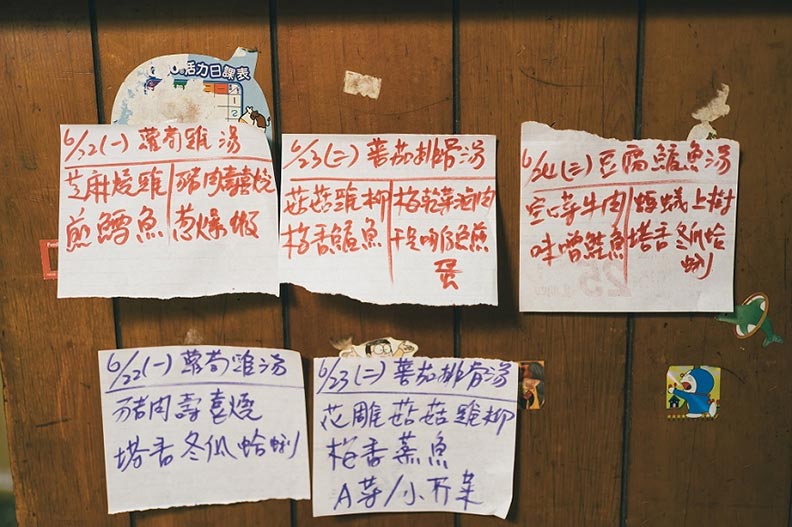 活力日課表
6/22(一) 蘿蔔雞湯
芝麻燒雞 豬肉壽喜燒
煎鱈魚 蔥爆蝦
6/23(二) 蕃茄排骨湯
菇菇雞柳 梅乾菜滷肉
梅香鱸魚
蛋
6/24(三) 豆腐鱸魚湯
空心菜牛肉 螞蟻上樹
味噌鮭魚 塔香冬瓜蛤
蜊
6/22(一) 蘿蔔雞湯
豬肉壽喜燒
塔香冬瓜蛤蜊
6/23(二) 蕃茄排骨湯
花雕菇菇雞柳
梅香蒸魚
A菜/小芥菜